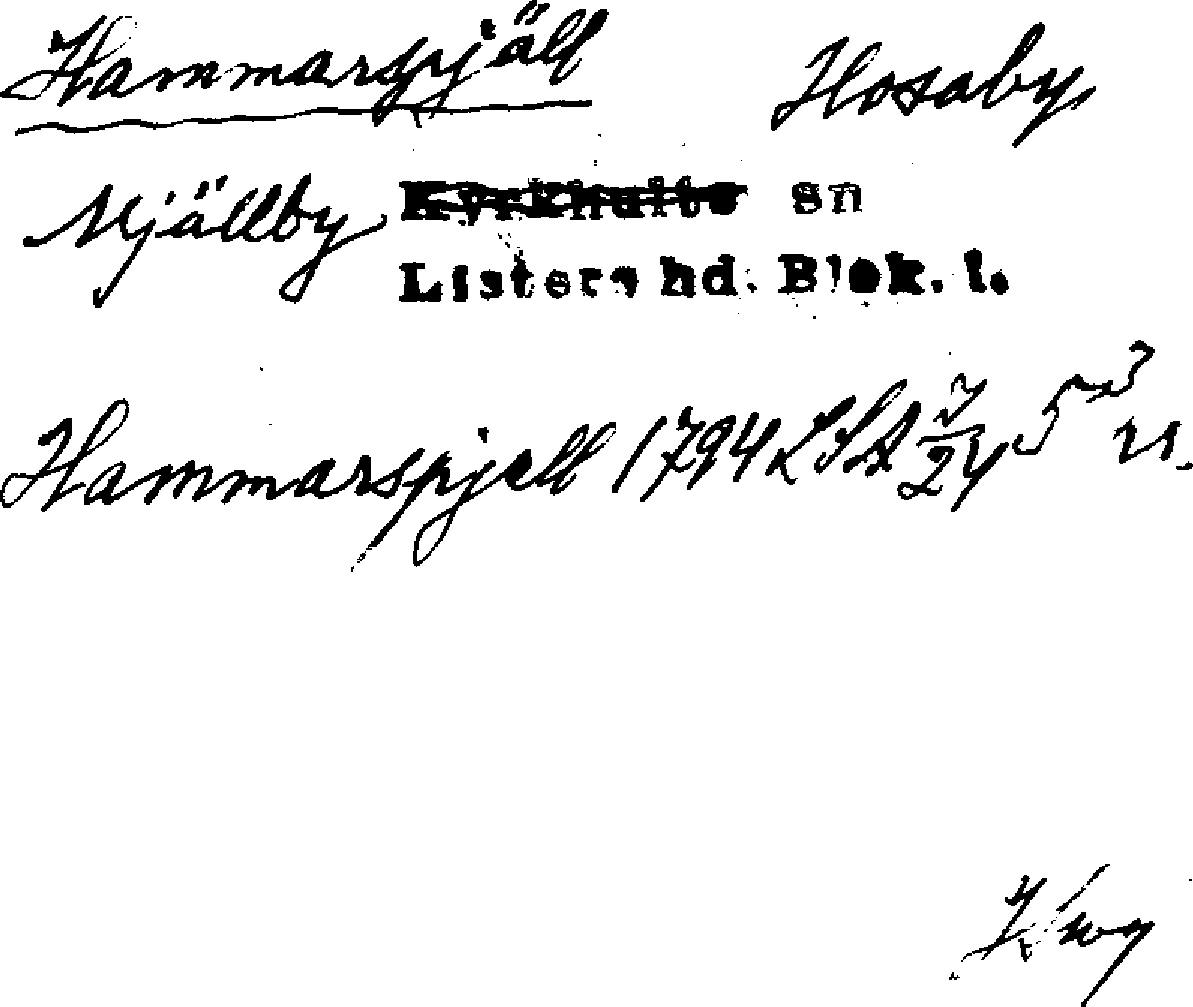 Hammarspjäll Hosaby,
Mjällby Kyrkhults sn
Listers hd. Blek. l.
Hammarspjell 1794 LSA